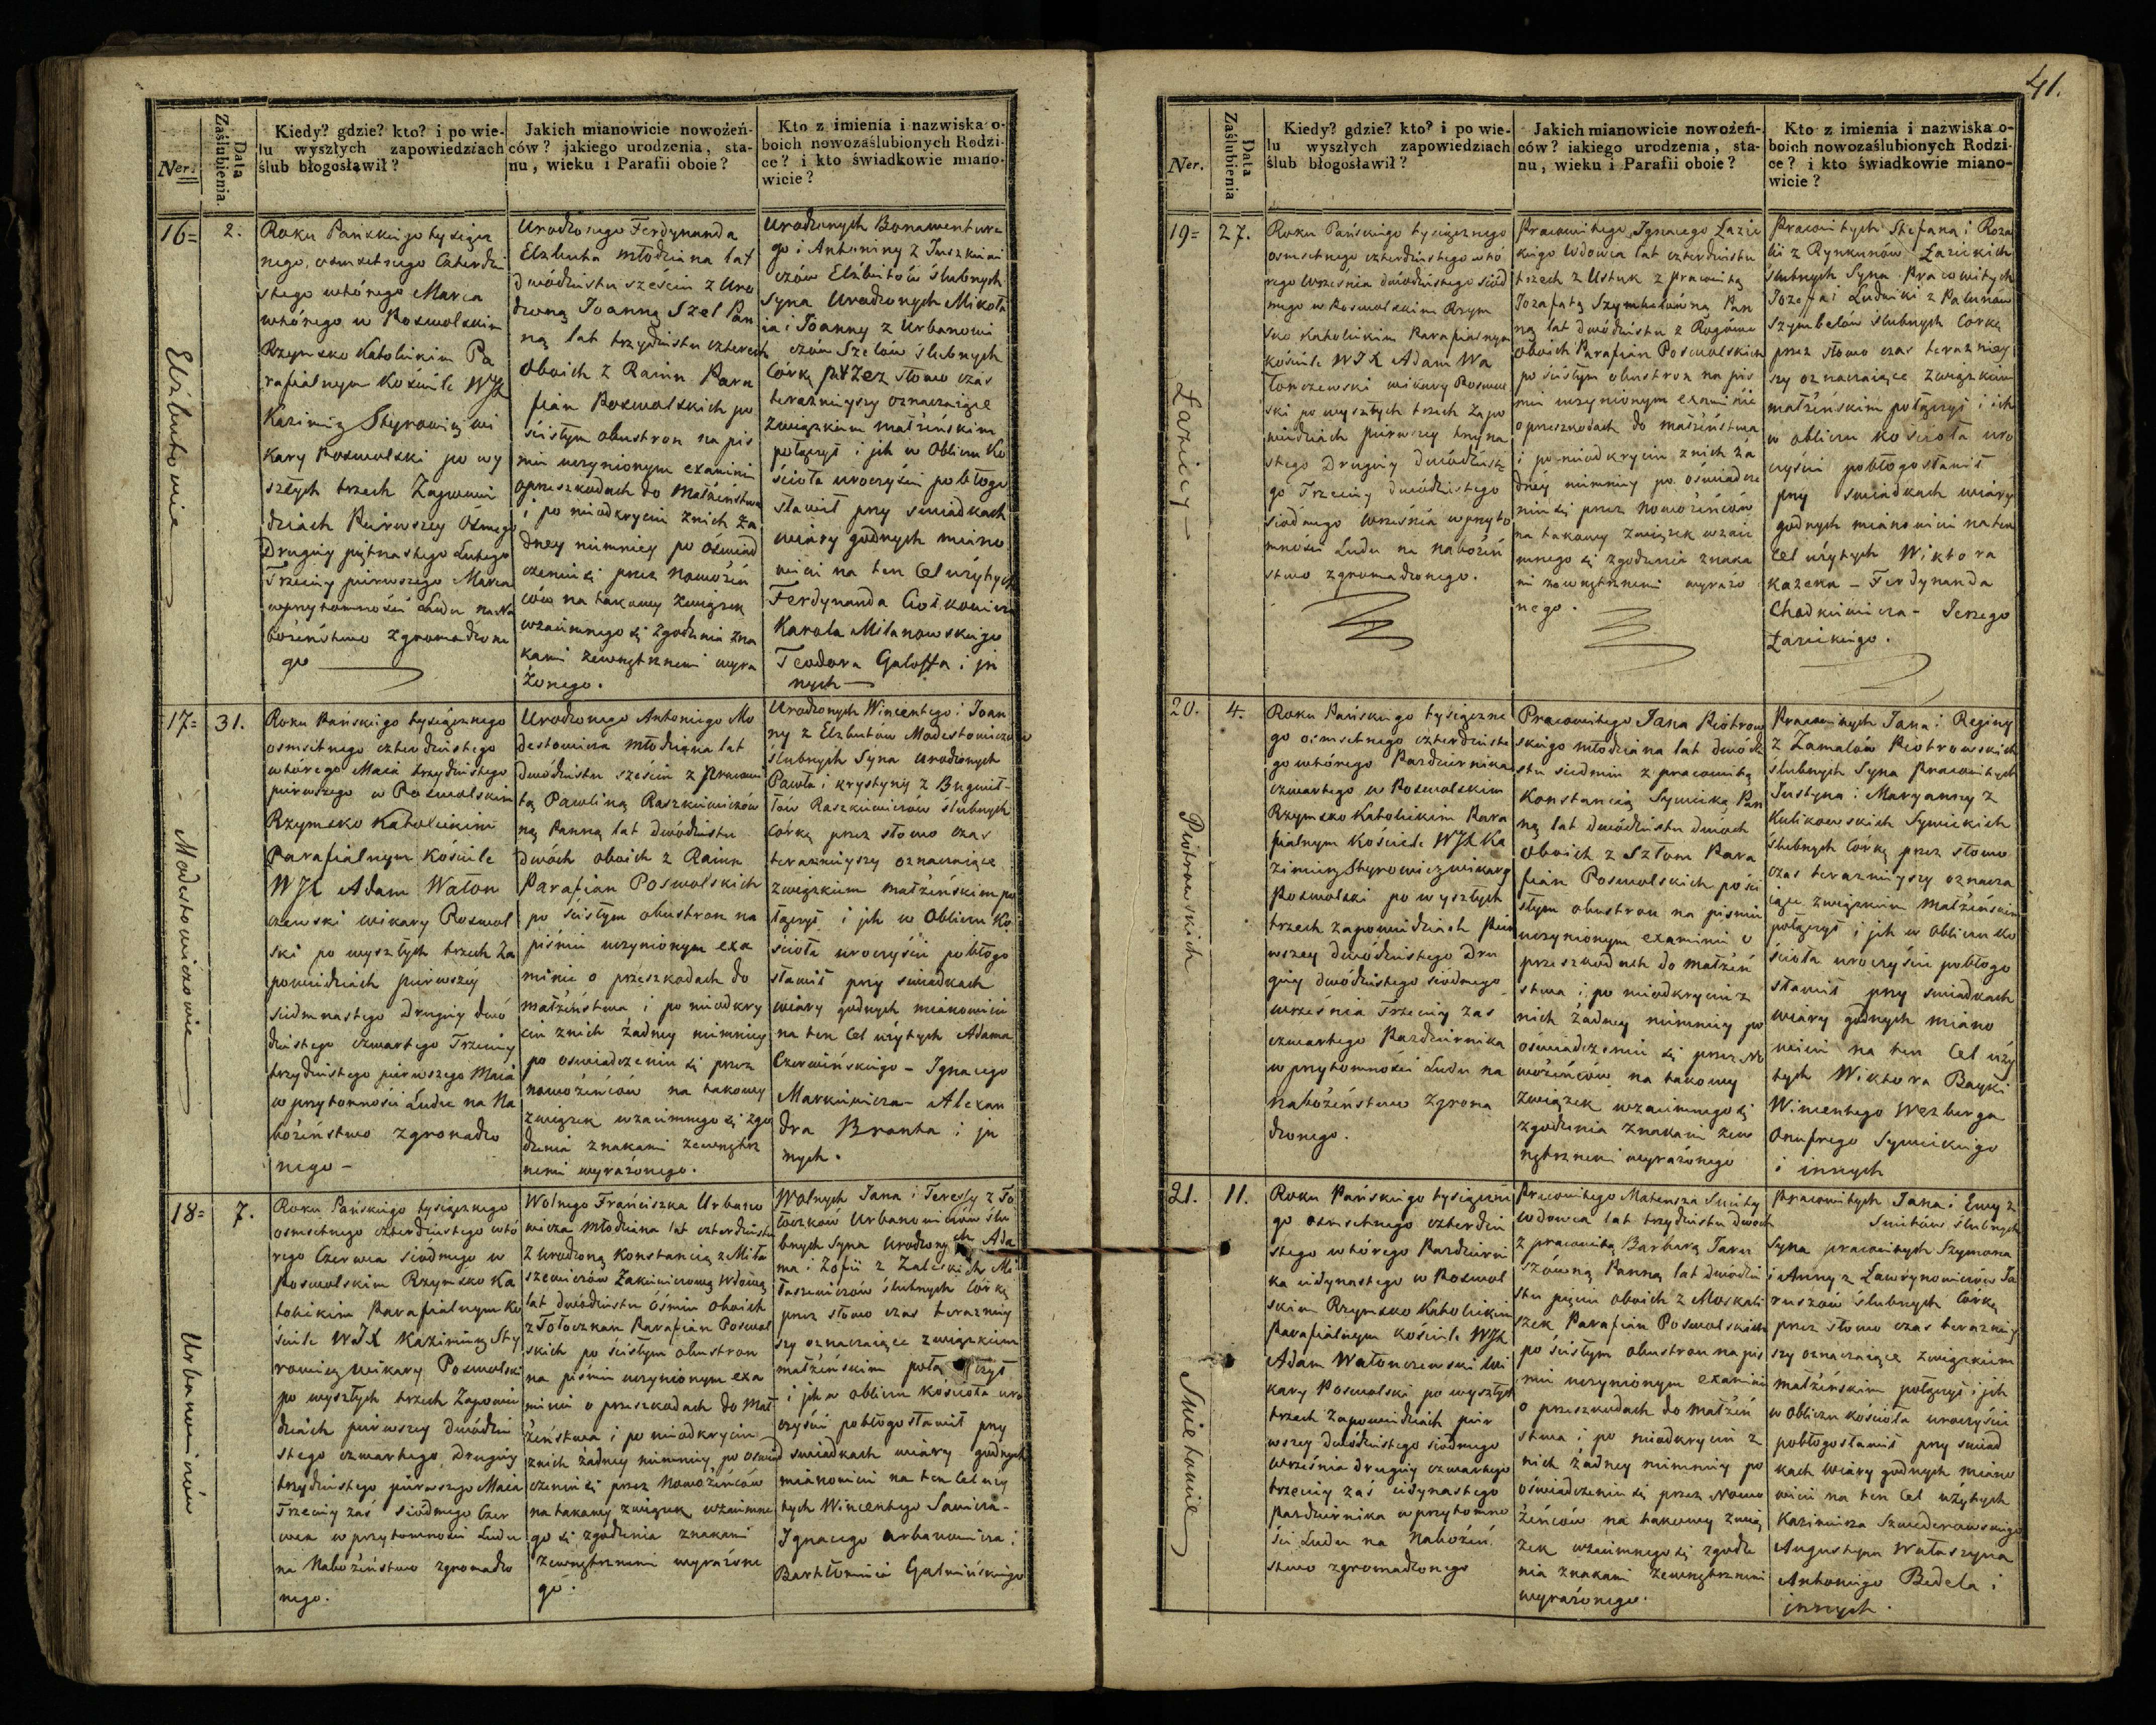 41.
Ner.
Data Zaślubienia.
Kiedy? gdzie? kto? i po wie-
lu wyszłych zapowiedziach
ślub błogosławił?
Jakich mianowicie nowożeń-
ców? jakiego urodzenia, sta-
nu, wieku i Parafii oboie?
Kto z imienia i nazwiska o-
boich nowozaślubionych Rodzi-
ce? i kto świadkowie miano-
wicie?
16=
2.
Elzbutowie
Roku Pańskiego tysiącz
nego, osmsetnego Czterdzi
stego wtórego Marca
wtórego w Poswolskim
Rzymsko Katolickim Pa
rafialnym Kościele WJX
Kazimierz Styrowicz wi
kary Poswolski po wy
szłych trzech Zapowie
dziach Pierwszey Ósmego
Drugiey piętnastego Lutego
Trzeciey pierwszego Marca
w przytomności Ludu na Na
bożeństwo zgromadzone
go
Urodzonego Ferdynanda
Elzbuta młodziana lat
dwódziestu sześciu z Uro
dzoną Joanną Szel Pan
ną lat trzydziestu czterech
oboich z Rainn Para
fian Poswolskich po
ścisłym obustron na piś
mie uczynionym examinie
o przeszkodach do Małżeństwa
i po nieodkryciu z nich ża
dney niemniey po oświad
czeniu się przez nowożeń
ców na takowy związek
wzaiemnego się zgodzenia zna
kami zewnętrznemi wyra
żonego.
Urodzonych Bonawenture
go i Antoniny z Juszkiewi
czów Elżbutów ślubnych
Syna Urodzonych Mikoła
ia i Joanny z Urbanowi
czów Szelów ślubnych
Córkę przez słowo czas
teraznieyszy oznaczaiące
związkiem małżeńskim
połączył i ich w Obliczu Ko
ścioła uroczyście pobłogo
sławił przy swiadkach
wiary godnych miano
wicie na ten Cel użytych
Ferdynanda
Karola Milanowskiego
Teodora Galoffa i in
nych
17=
31.
Modestowiczowie
Roku Pańskiego tysiącznego
osmsetnego czterdziestego
wtórego Maia trzydziestego
pierwszego w Poswolskim
Rzymsko Katolickim
Parafialnym Kościele
WJX Adam Waton
czewski wikary Poswol
ski po wyszłych trzech Za
powiedziach pierwszéy
siedmnastego Drugiey dwó
dziestego czwartego Trzeciey
trzydziestego pierwszego Maia
w przytomności Ludu na Na
bożeństwo zgromadzo
nego -
Urodzonego Antoniego Mo
destowicza młodziana lat
dwódziestu sześciu z Pracowi
tą Pawliną Raszkiewiczów
ną Panną lat dwódziestu
dwóch oboich z Rainn
Parafian Poswolskich
po ścisłym obustron na
piśmie uczynionym exa
minie o przeszkodach do
małżeństwa i po nieodkry
ciu z nich żadney niemniey
po oswiadczeniu się przez
nowożeńców na takowy
związek wzaiemnego się zgo
dzenia znakami zewnętrz
nemi wyrażonego.
Urodzonych Wincentego i Joan
ny z Elzbutow Modestowiczów
ślubnych Syna Urodzonych
Pawła i Krystyny z
Raszkiewiczow ślubnych
Córkę przez słowo czas
teraznieyszy oznaczaiące
związkiem małżeńskim po
łączył i ich w Obliczu Ko
ścioła uroczyście pobłogo
sławił przy swiadkach
wiary godnych mianowicie
na ten Cel użytych Adama
Czerwińskiego - Ignacego
Markiewicza - Alexan
dra Branta i in
nych.
18=
7.
Urbanowiczów
Roku Pańskiego tysiącznego
osmsetnego czterdziestego wtó
rego Czerwca siódmego w
Poswolskim Rzymsko Ka
tolickim Parafialnym Ko
ściele WJX Kazimierz Sty
rowicz wikary Poswolski
po wyszłych trzech Zapowie
dziach pierwszey dwódzie
stego czwartego, Drugiey
trzydziestego pierwszego Maia
Trzeciey zaś siódmego Czer
wca w przytomności Ludu
na Nabożeństwo zgromadzo
nego.
Wolnego Franciszka Urbano
wicza młodziana lat czterdziestu
z urodzoną Konstancią z Mita
szewiczów Zakiewiczową Wdową
lat dwódziestu ósmiu oboich
z Tołoczkan Parafian Poswol
skich po ścisłym obustron
na piśmie uczynionym exa
minie o przeszkodach do Mał
żeństwa i po nieodkryciu
z nich żadney niemniey po oswiad
czeniu się przez Nowożeńców
na takowy związek wzaiemne
go się zgodzenia znakami
zewnętrznemi wyrażone
go.
Wolnych Jana i Teressy z To
łoczków Urbanowiczów ślu
bnych Syna Urodzonych Ada
ma i Zofii z Zaleskich Mi
taszewiczów ślubnych Córkę
przez słowo czas terazniey
szy oznaczaiące związkiem
małżeńskim połączył
i ich w obliczu Kościoła uro
czyście pobłogosławił przy
swiadkach wiary godnych
mianowicie na ten Cel uży
tych Wincentego Sawicza -
Ignacego Urbanowicza i
Bartłomieia
Ner.
Data Zaślubienia
Kiedy? gdzie? kto? i po wie-
lu wyszłych zapowiedziach
ślub błogosławił?
Jakich mianowicie nowożeń-
ców? iakiego urodzenia, sta-
nu, wieku i Parafii oboie?
Kto z imienia i nazwiska o-
boich nowozaślubionych Rodzi-
ce? i kto świadkowie miano-
wicie?
19=
27.
Łaziccy
Roku Pańskiego tysiącznego
osmsetnego czterdziestego wtó
rego Września dwódziestego siód
mego w Poswolskim Rzym
sko Katolickim Parafialnym
kościele WJX Adam Wa
tonczewski wikary Poswol
ski po wyszłych trzech Zapo
wiedziach pierwszey trzyna
stego Drugiey dwódzieste
go Trzeciey dwódziestego
siódmego września w przyto
mności Ludu na nabożeń
stwo zgromadzonego.
Pracowitego Ignacego Łazic
kiego Wdowca lat czterdziestu
trzech z Ustuk z pracowitą
Jozafatą Szymbelówną Pan
ną lat dwódziestu z Rogówa
oboich Parafian Poswolskich
po ścisłym obustron na piś
mie uczynionym examinie
o przeszkodach do małżeństwa
i po nieodkryciu z nich ża
dnéy niemniey po oświadcze
niu się przez nowożeńców
na takowy związek wzaie
mnego się zgodzenia znaka
mi zewnętrznemi wyrażo
nego.
Pracowitych Stefana i Roza
lii z Rynkunów Łazickich
ślubnych Syna Pracowitych
Jozefa i Ludwiki z Palunow
Szymbelów ślubnych Córkę
przez słowo czas terazniey
szy oznaczaiące związkiem
małżeńskim połączył i ich
w obliczu kościoła uro
czyście pobłogosławił
przy swiadkach wiary
godnych mianowicie na ten
Cel użytych Wiktora
Kazeka - Ferdynanda
Chodkiewicza - Jerzego
Łazickiego.
20.
4.
Piotrowskich
Roku Pańskiego tysiączne
go osmsetnego czterdzieste
go wtórego Pazdziernika
czwartego w Poswolskim
Rzymsko Katolickim Para
fialnym Kościele WJX Ka
zimierz Styrowicz wikary
Poswolski po wyszłych
trzech zapowiedziach Pier
wszey dwódziestego Dru
giey dwódziestego siódmego
września Trzeciey zaś
czwartego Pazdziernika
w przytomności Ludu na
nabożeństwo Zgroma
dzonego.
Pracowitego Jana Piotrow
skiego młodziana lat dwódzie
stu siedmiu z pracowitą
Konstancią Sywicką Pan
ną lat dwódziestu dwóch
oboich z Szłom Para
fian Poswolskich po ści
słym obustron na piśmie
uczynionym examinie o
przeszkodach do małżeń
stwa i po nieodkryciu z
nich żadney niemniey po
oswiadczeniu się przez No
wożeńców na takowy
związek wzaiemnego się
zgodzenia znakami zew
nętrznemi wyrażonego
Pracowitych Jana i Reginy
z Zamalów Piotrowskich
ślubnych Syna Pracowitych
Justyna i Maryanny z
Kulikowskich Sywickich
ślubnych Córkę przez słowo
czas teraznieyszy oznacza
iące związkiem Małżeńskim
połączył i ich w Obliczu Ko
ścioła uroczyście pobłogo
sławił przy swiadkach
wiary godnych miano
wicie na ten Cel uży
tych Wiktora Bayki
Wincentego Wezberga
Onufrego Sywickiego
i innych
21.
11.
Smietowie
Roku Pańskiego tysiączne
go osmsetnego czterdzie
stego wtórego Pazdzierni
ka iedynastego w Poswol
skim Rzymsko Katolickim
Parafialnym kościele WJX
Adam Watonczewski Wi
kary Poswolski po wyszłych
trzech Zapowiedziach pier
wszey dwódziestego siódmego
Września drugiey czwartego
trzeciey zaś iedynastego
Pazdziernika w przytomno
ści Ludu na Nabożeń
stwo zgromadzonego
Pracowitego Mateusza
wdowca lat trzydziestu dwoch
z pracowitą Barbarą Taru
szówną Panną lat dwódzie
stu pięciu oboich z Moskali
szek Parafian Poswolskich
po ścisłym obustron na piś
mie uczynionym examinie
o przeszkodach do Małżeń
stwa i po nieodkryciu z
nich żadney niemniey po
oświadczeniu się przez Nowo
żeńców na takowy zwią
zek wzaiemnego się zgodze
nia znakami zewnętrznemi
wyrażonego.
Pracowitych Jana i Ewy z
ślubnych
Syna pracowitych Szymona
i Anny z Ławrynowiczów Ta
ruszów ślubnych Córkę
przez słowo czas terazniey
szy oznaczaiące związkiem
Małżeńskim połączył i ich
w Obliczu kościoła uroczyście
pobłogosławił przy swiad
kach wiary godnych miano
wicie na ten Cel użytych
Kazimierza Szwederowskiego
Augustyna Wataszyna
Antoniego Bedela i
innych.